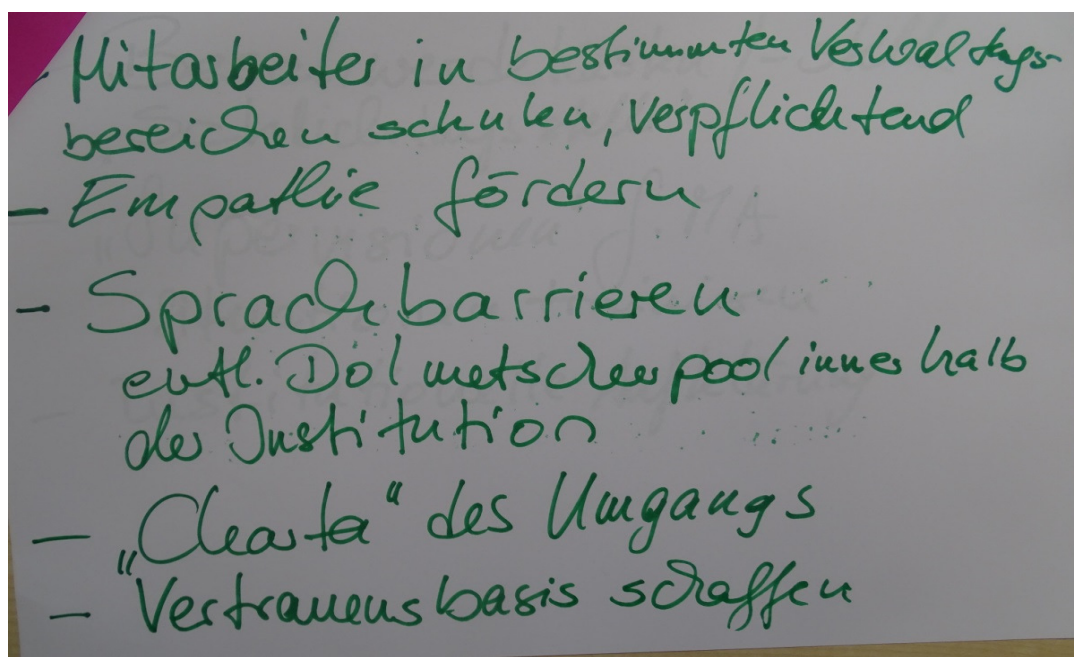 - Mitarbeiter in bestimmten Verwaltungs-
bereichen schulen, verpflichtend
- Empathie fördern
- Sprachbarrieren
evtl. Dolmetscherpool innerhalb
der Institution
- „Charta“ des Umgangs
- Vertrauensbasis schaffen